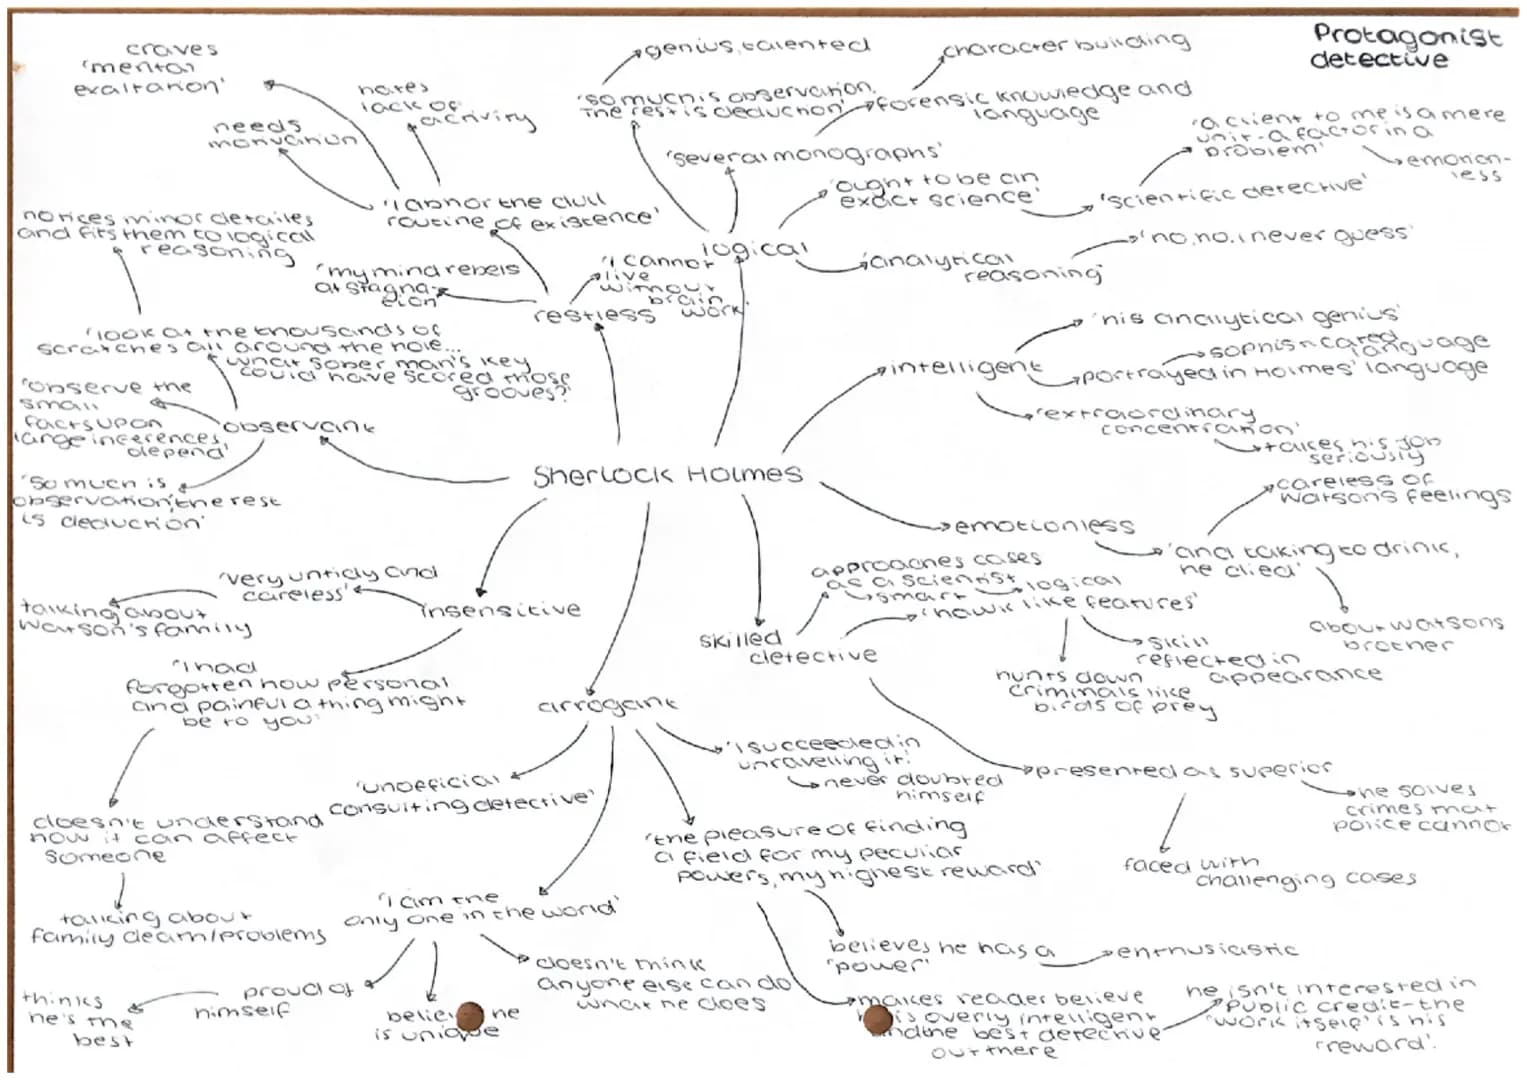 Protagonist
detective
craves
'mental
exaltation'
hates
lack of
activity
needs
motivation
'I abhor the dull
routine of existence'
'my mind rebels
at stagna-
tion'
'I cannot
live
without
brain
work'
restless
genius, talented
'so much is observation,
the rest is deduction'
character building
forensic knowledge and
language
'several monographs'
'ought to be an
exact science'
'scientific detective'
'a client to me is a mere
unit - a factor in a
problem'
emotion-
less
logical
analytical
reasoning
'no, no, I never guess'
notices minor detailes
and fits them to logical
reasoning
'look at the thousands of
scratches all around the hole...
what sober man's key
could have scored those
grooves?'
'observe the
small
facts upon
large inferences
depend'
observant
'so much is
observation, the rest
is deduction'
intelligent
'his analytical genius'
sophisticated
language
portrayed in Holmes' language
'extraordinary
concentration'
takes his job
seriously
Sherlock Holmes
emotionless
careless of
Watson's feelings
'and taking to drink,
he died'
about Watsons
brother
'very untidy and
careless'
talking about
Watson's family
insensitive
'I had
forgotten how personal
and painful a thing might
be to you'
doesn't understand
how it can affect
someone
talking about
family death/problems
skilled
detective
approaches cases
as a scientist
smart
logical
'hawk like features'
hunts down
criminals like
birds of prey
skill
reflected in
appearance
presented as superior
he solves
crimes that
police cannot
faced with
challenging cases
arrogant
'unofficial
consulting detective'
'I succeeded in
unravelling it'
never doubted
himself
'the pleasure of finding
a field for my peculiar
powers, my highest reward'
believes he has a
'power'
enthusiastic
makes reader believe
is overly intelligent
and the best detective
out there
he isn't interested in
public credit - the
'work itself' is his
'reward'.
'I am the
only one in the world'
proud of
himself
thinks
he's the
best
he
is unique
doesn't think
anyone else can do
what he does